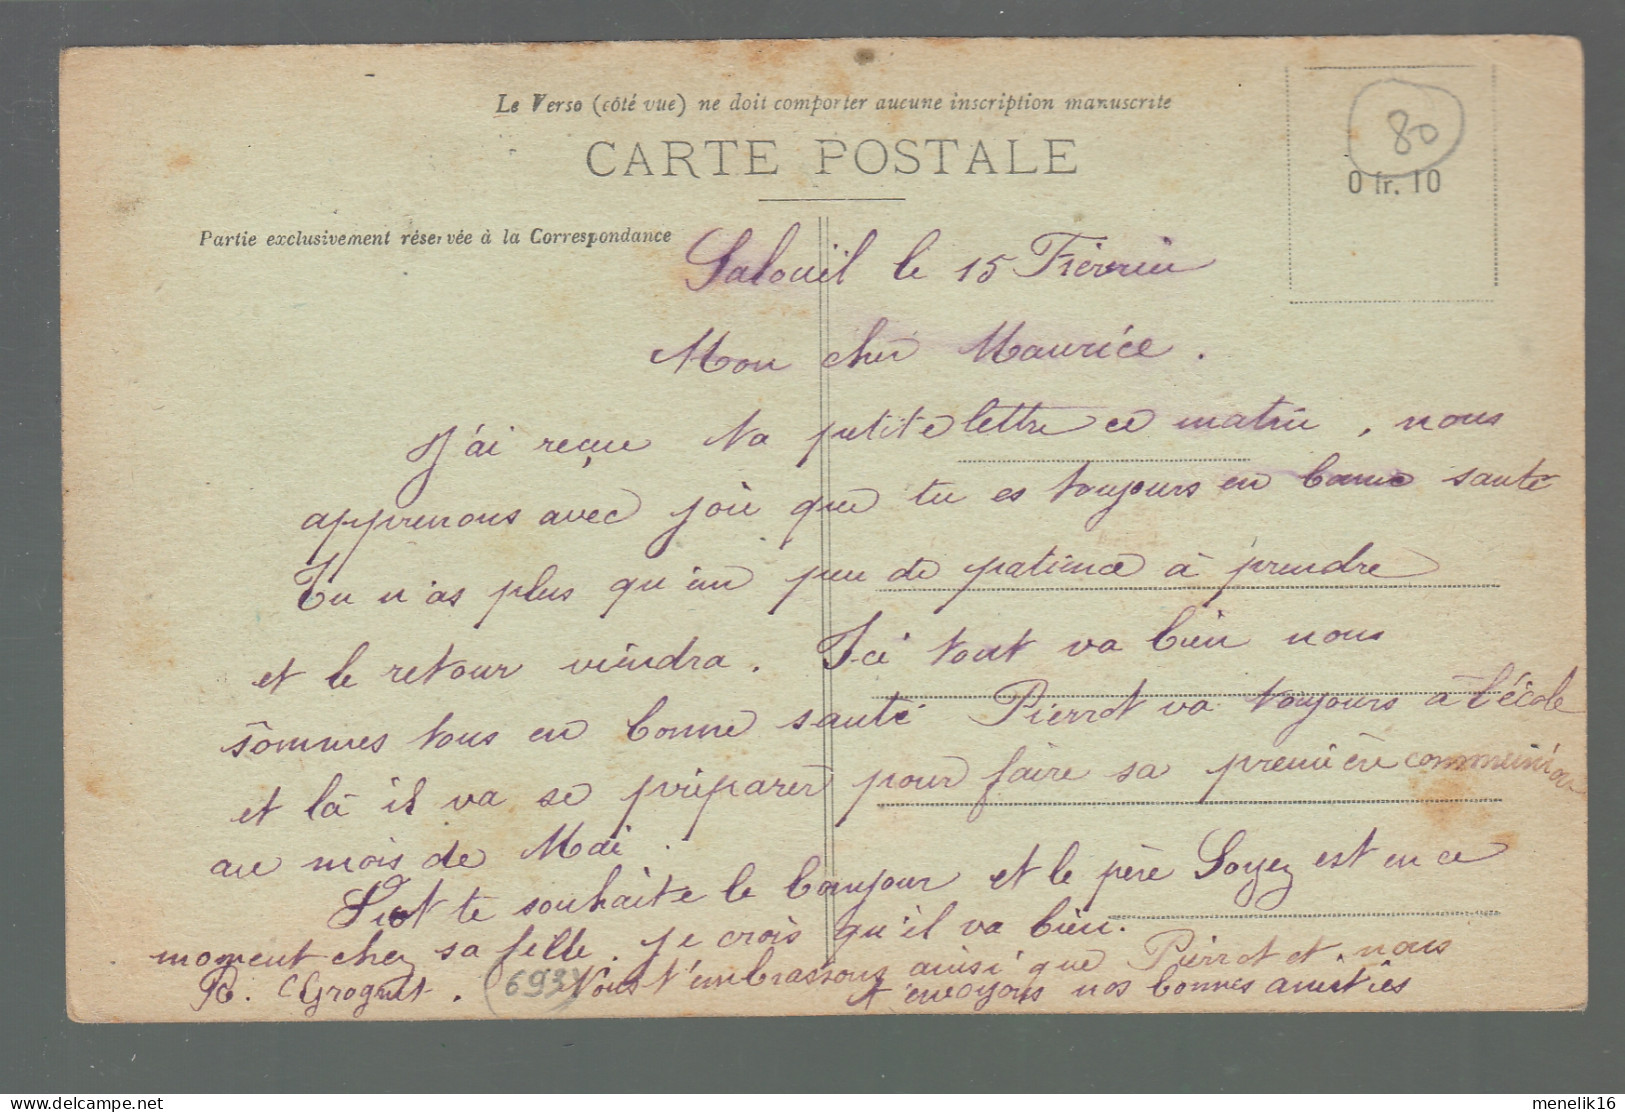 Le Verso (côté vue) ne doit comporter aucune inscription manuscrite
CARTE POSTALE
80
0 fr. 10
Partie exclusivement réservée à la Correspondance
Salouil le 15 Fiévrier
Mon cher Maurice.
J'ai reçue ta petite lettre ce matin, nous
apprenons avec joie que tu es toujours en bonne santé
Tu n'as plus qu'un peu de patience à prendre
et le retour viendra. Ici tout va bien nous
sommes tous en bonne santé Pierrot va toujours à l'école
et là il va se préparer pour faire sa première communion
au mois de Mai.
te souhaite le bonjour et le père Soyez est en ce
moment chez sa fille. je crois qu'il va bien.
Nous t'embrassons ainsi que Pierrot et nous
t'envoyons nos bonnes amitiés
R. Grognet.
693
menelik16